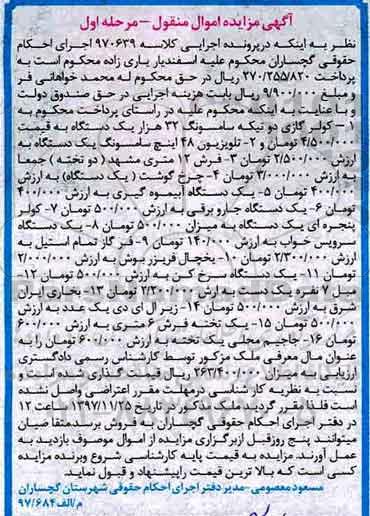 آگهی مزایده اموال منقول – مرحله اول
نظر به اینکه درپرونده اجرایی کلاسه ۹۷۰۶۳۹ اجرای احکام
حقوقی گچساران محکوم علیه اسفندیار یاری زاده محکوم است به
پرداخت ۲۷۰/۲۵۵/۸۲۰ ریال در حق محکوم له محمد خواهانی فر
و مبلغ ۹/۹۰۰/۰۰۰ ریال بابت هزینه اجرایی در حق صندوق دولت
و با عنایت به اینکه محکوم علیه در راستای پرداخت محکوم به
۱- کولر گازی دو تیکه سامسونگ ۳۲ هزار یک دستگاه به قیمت
۴/۵۰۰/۰۰۰ تومان و ۲- تلویزیون ۴۸ اینچ سامسونگ یک دستگاه به
ارزش ۲/۵۰۰/۰۰۰ تومان ۳- فرش ۱۲ متری مشهد ( دو تخته ) جمعا
به ارزش ۳/۰۰۰/۰۰۰ تومان ۴- چرخ گوشت ( یک دستگاه) به ارزش
۴۰۰/۰۰۰ تومان ۵- یک دستگاه آبیموه گیری به ارزش ۴۰۰/۰۰۰
تومان ۶- یک دستگاه جارو برقی به ارزش ۵۰۰/۰۰۰ تومان ۷- کولر
پنجره ای یک دستگاه به میزان ۵۰۰/۰۰۰ تومان ۸- یک دستگاه
سرویس خواب به ارزش ۱۴۰/۰۰۰ تومان ۹- فر گاز تمام استیل به
ارزش ۲/۳۰۰/۰۰۰ تومان ۱۰- یخچال فریزر بوش به ارزش ۲/۰۰۰/۰۰۰
تومان ۱۱- یک دستگاه سرخ کن به ارزش ۵۰۰/۰۰۰ تومان ۱۲-
مبل ۷ نفره یک دست به ارزش ۲/۲۰۰/۰۰۰ تومان ۱۳- بخاری ایران
شرق به ارزش ۵۰۰/۰۰۰ تومان ۱۴- زیر ال ای دی یک عدد به ارزش
۵۰۰/۰۰۰ تومان ۱۵- یک تخته فرش ۶ متری به ارزش ۶۰۰/۰۰۰
تومان ۱۶- جاجیم محلی یک تخته به ارزش ۶۰۰/۰۰۰ تومان را به
عنوان مال معرفی ملک مزکور توسط کارشناس رسمی دادگستری
ارزیابی به میزان ۲۶۳/۴۰۰/۰۰۰ ریال قیمت گذاری شده است و
نسبت به نظریه کارشناسی درمهلت مقرر اعتراضی واصل نشده
است فلذا مقرر گردید ملک مذکور در تاریخ ۱۳۹۷/۱۱/۲۵ ساعت ۱۲
در دفتر اجرای احکام حقوقی گچساران به فروش برسدمتقاضیان
میتوانند پنج روزقبل ازبرگزاری مزایده از اموال موصوف بازدید به
عمل آورند. مزایده به قیمت پایه کارشناسی شروع وبرنده مزایده
کسی است که بالا ترین قیمت راپیشنهاد و قبول نماید.
مسعود معصومی -مدیر دفتر اجرای احکام حقوقی شهرستان گچساران
م/الف۹۷/۶۸۴